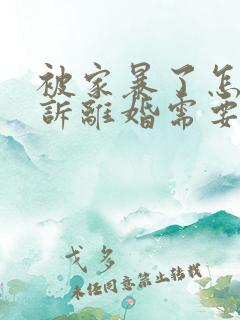 被家暴了怎
訴離婚需要
戈多
未经同意禁止转载